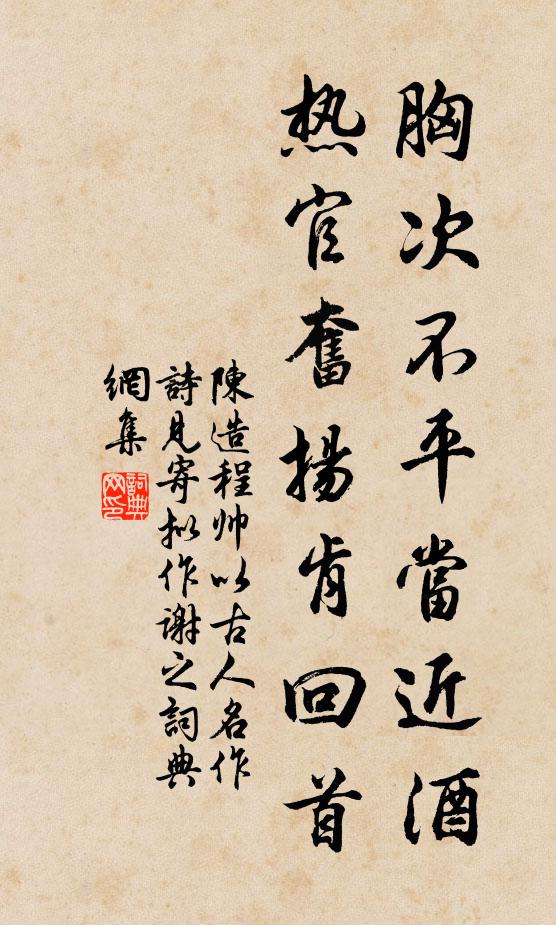 胸次不平當近酒
热官奮揚肯回首
陳造程帅以古人名作
詩見寄拟作謝之詞典
網集
詞典
网印